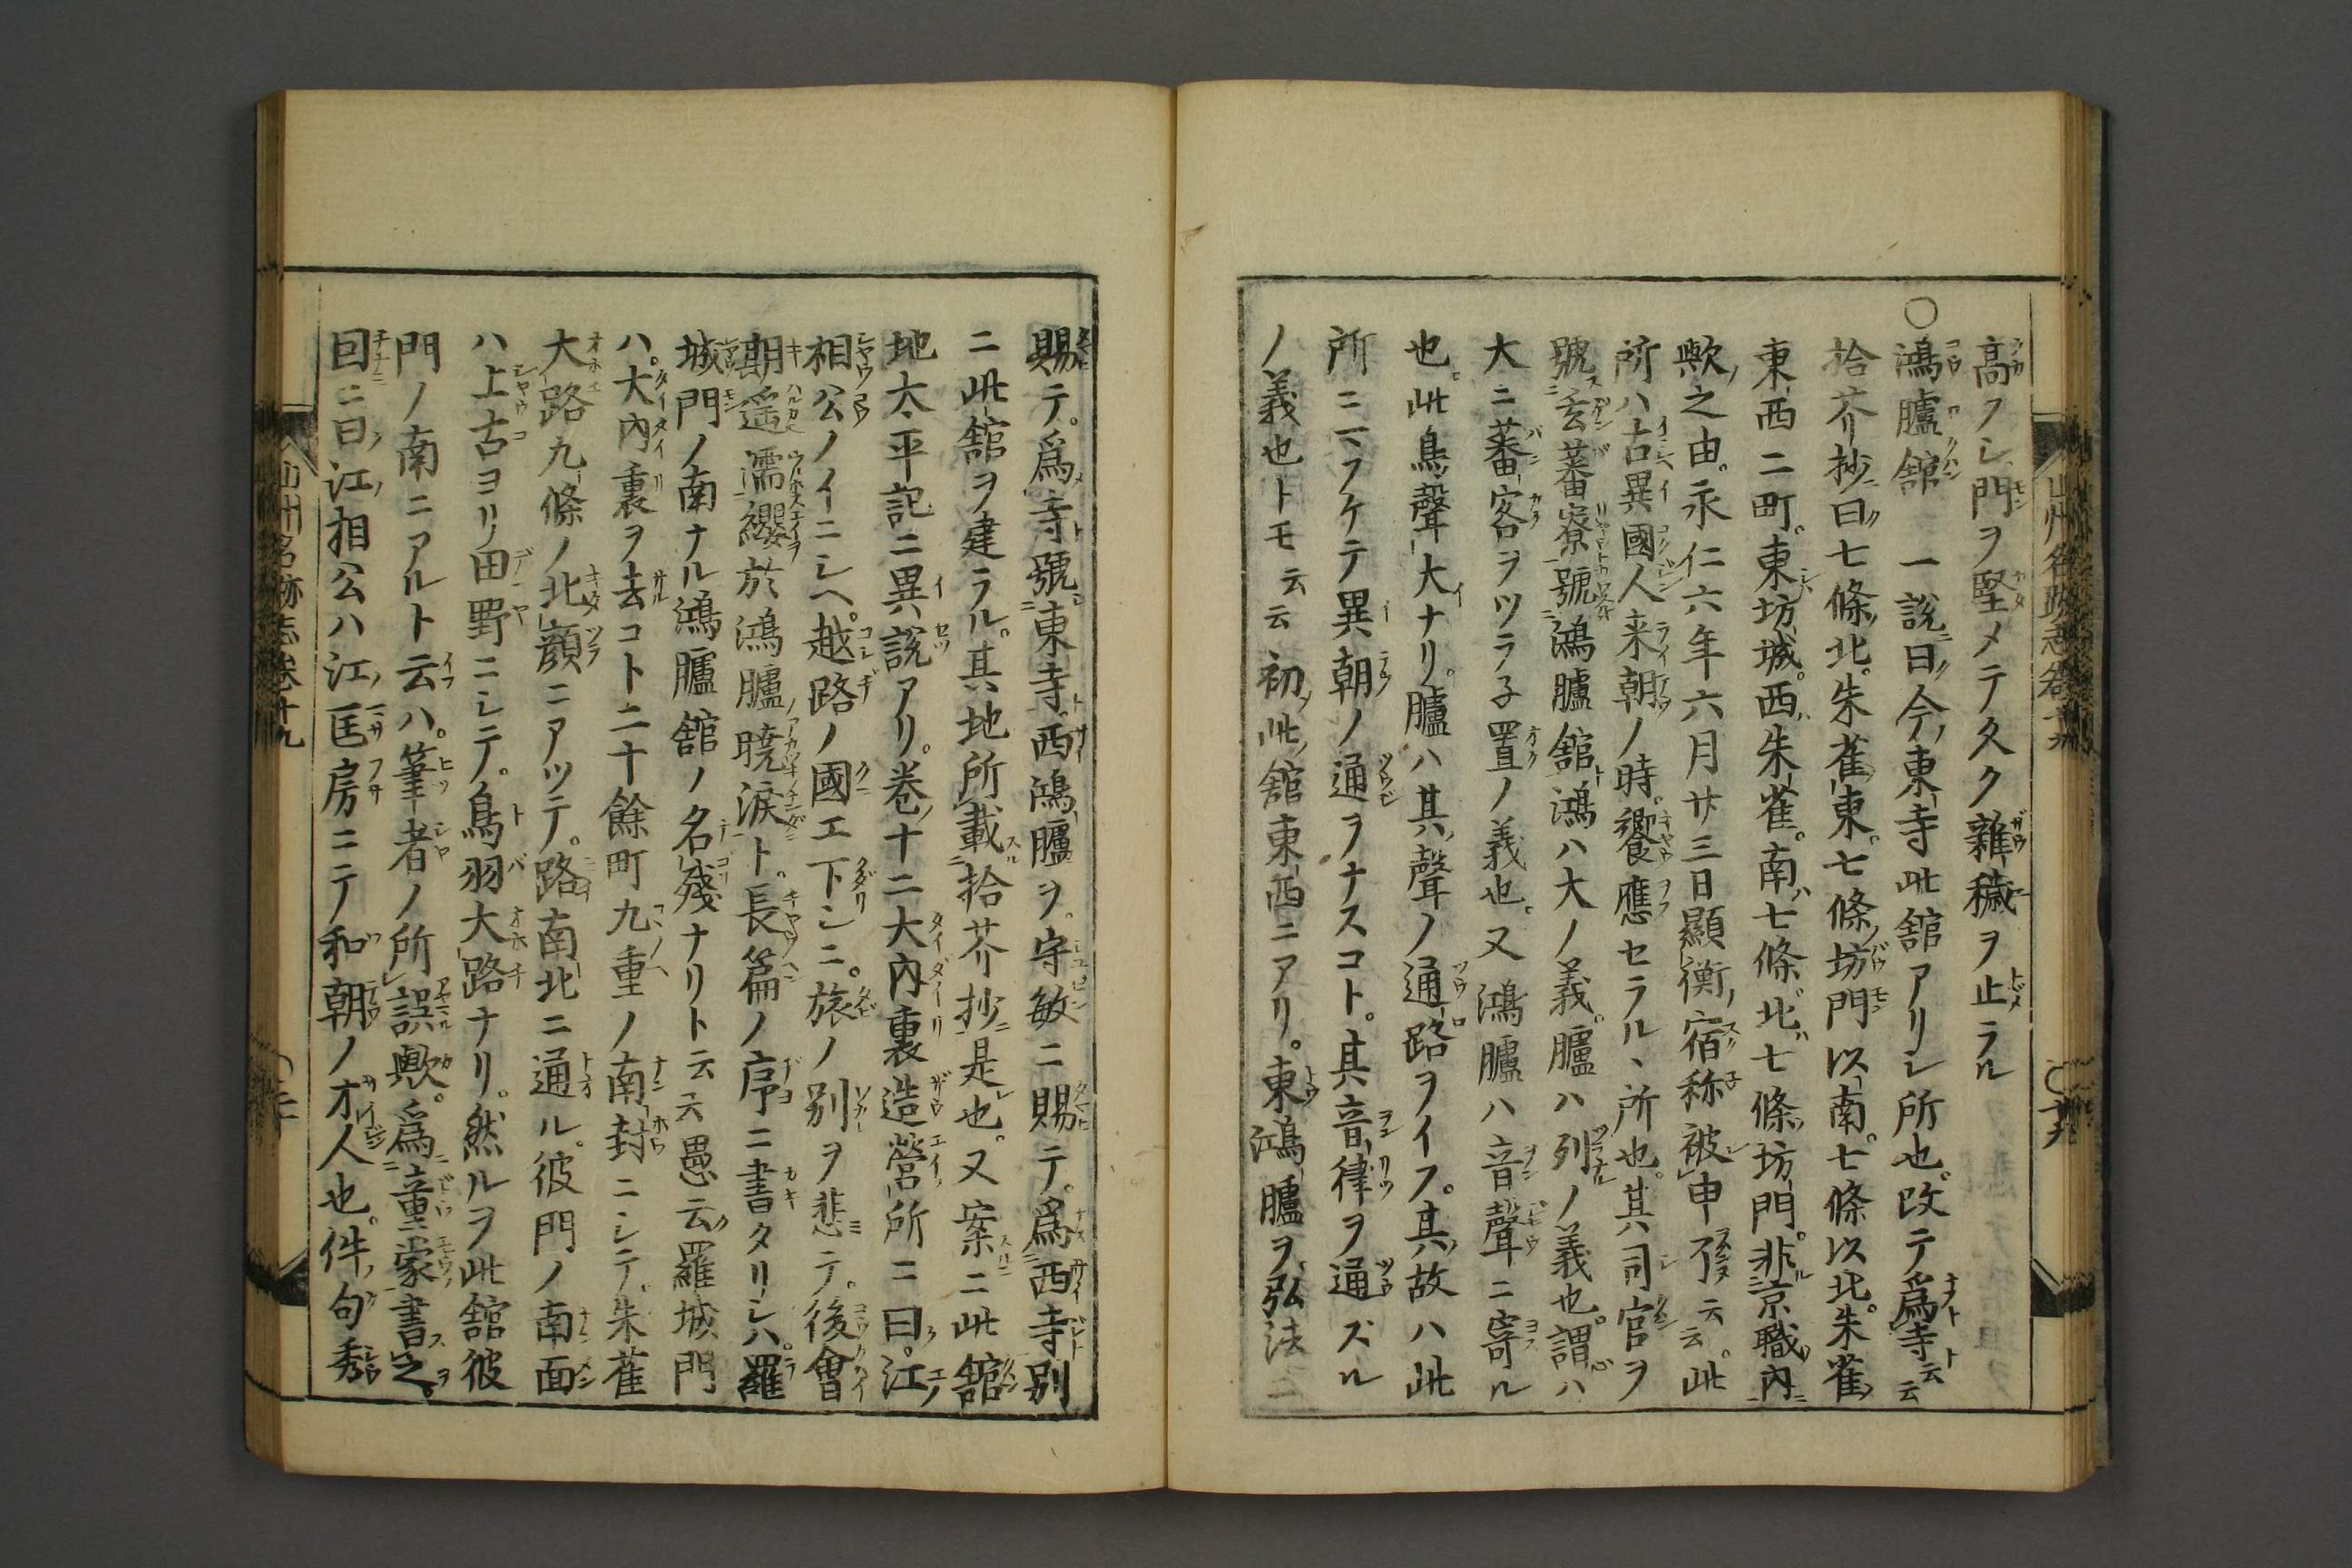 高フシ門ヲ堅メテ久ク雜穢ヲ止ラル
○鴻臚舘　一說曰今東寺此舘アリシ所也。改テ爲寺云云
拾芥抄曰七條北。朱雀東。七條坊門以南。七條以北。朱雀
東西二町。東坊城。西朱雀。南七條。北七條坊門。非京職內
歟之由。永仁六年六月廿三日顯衡宿称被申了云云。此
所ハ古異國人来朝ノ時。饗應セラルヽ所也。其司官ヲ
號玄蕃寮號鴻臚舘鴻ハ大ノ義。臚ハ列ノ義也。謂ハ
大ニ蕃客ヲツラ子置ノ義也。又鴻臚ハ音聲ニ寄ル
也。此鳥聲大ナリ。臚ハ其聲ノ通路ヲイフ。其故ハ此
所ニヲケテ異朝ノ通ヲナスコト。其音律ヲ通ズル
ノ義也トモ云云初此舘東西ニアリ。東鴻臚ヲ弘法ニ
賜テ。爲寺號東寺西鴻臚ヲ。守敏ニ賜テ。爲西寺別
ニ此舘ヲ建ラル。其地所載拾芥抄是也。又案ニ此舘
地太平記ニ異說アリ。卷十二大內裏造營所ニ曰。江
相公ノイニシヘ。越路ノ國エ下シニ。旅ノ別ヲ悲テ。後會
期遥濡纓於鴻臚曉淚ト。長篇ノ序ニ書タリシハ。羅
城門ノ南ナル鴻臚舘ノ名殘ナリト云云愚云羅城門
ハ。大內裏ヲ去コト二十餘町九重ノ南封ニシテ。朱雀
大路九條ノ北顏ニアツテ。路南北ニ通ル。彼門ノ南面
ハ上古ヨリ田野ニシテ。鳥羽大路ナリ。然ルヲ此舘彼
門ノ南ニアルト云ハ。筆者ノ所誤歟。爲童蒙書之。
回ニ曰江相公ハ江匡房ニテ和朝ノ才人也。件句秀
山州名跡志卷十九